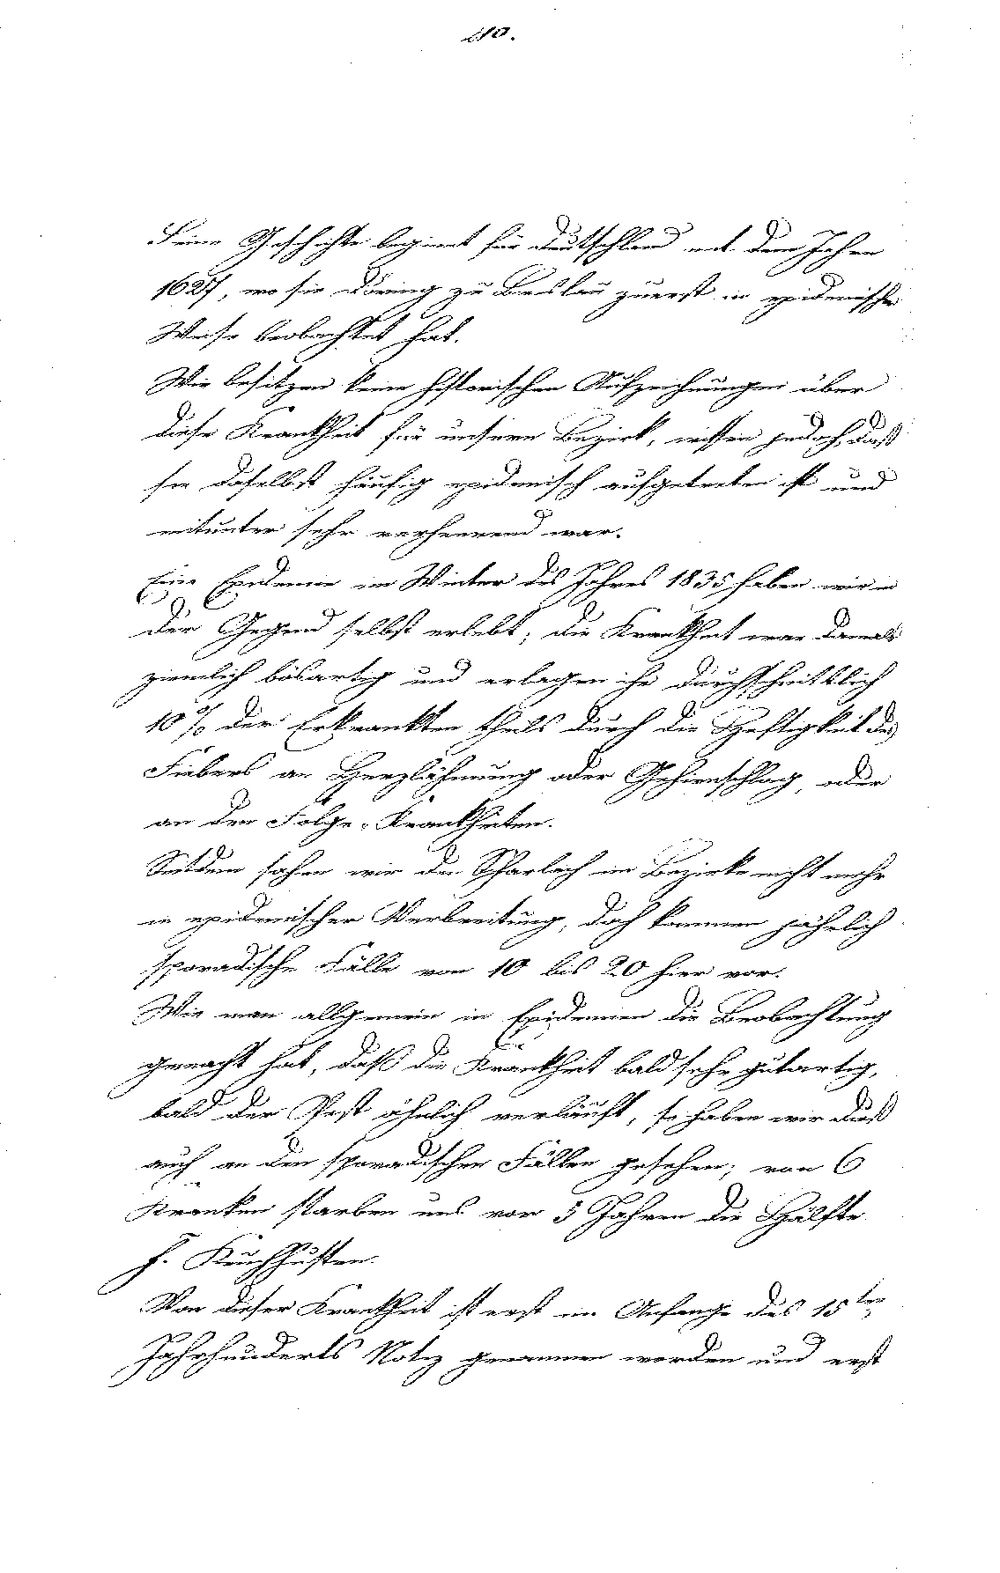 210.
Seine Geschichte beginnt für Deutschland mit dem Jahre
1627, wo sie Döring zu Breslau zuerst in epidemischer
Weise beobachtet hat.
Wir besitzen keine historischen Aufzeichnungen über
diese Krankheit für unsern Bezirk, wissen jedoch, daß
sie daselbst häufig epidemisch aufgetreten ist und
mitunter sehr verheerend war.
Eine Epidemie im Winter des Jahres 1835 haben wir in
der Gegend selbst erlebt; die Krankheit war damals
ziemlich bösartig und erlagen ihr durchschnittlich
10 % der Erkrankten theils durch die Heftigkeit des
Fiebers an Herzlähmung oder Gehirnschlag, oder
an den Folge-Krankheiten.
Seitdem sahen wir den Scharlach im Bezirke nicht mehr
in epidemischer Verbreitung, doch kommen jährlich
sporadische Fälle von 10 bis 20 hier vor.
Wie man allgemein in Epidemien die Beobachtung
gemacht hat, daß die Krankheit bald sehr gutartig,
bald der Pest ähnlich verläuft, so haben wir dieß
auch an den sporadischen Fällen gesehen; von 6
Kranken starben uns vor 3 Jahren die Hälfte.
f. Keuchhusten.
Von dieser Krankheit ist erst im Anfange des 15ten
Jahrhunderts Notiz genommen worden und erst